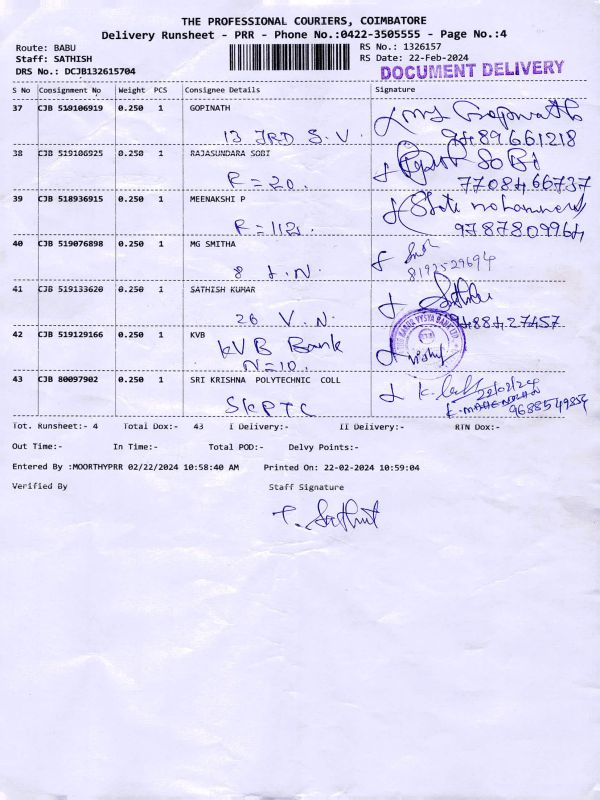 THE PROFESSIONAL COURIERS, COIMBATORE
Delivery Runsheet - PRR - Phone No.:0422-3505555 - Page No.:4
Route: BABU RS No.: 1326157
Staff: SATHISH RS Date: 22-Feb-2024
DRS No.: DCJB132615704 DOCUMENT DELIVERY
S No Consignment No Weight PCS Consignee Details Signature
37 CJB 519106919 0.250 1 GOPINATH Gopinath
13 3RD S.V. 9489661218
38 CJB 519106925 0.250 1 RAJASUNDARA SOBI SOBI
R=20. 7708466737
39 CJB 518936915 0.250 1 MEENAKSHI P
R=112. 9787809964
40 CJB 519076898 0.250 1 MG SMITHA
8 L.N. 8192529694
41 CJB 519133620 0.250 1 SATHISH KUMAR
26 V.N. 9488427457
42 CJB 519129166 0.250 1 KVB
KVB Bank
N=10.
43 CJB 80097902 0.250 1 SRI KRISHNA POLYTECHNIC COLL 22/02/24
SKPTC 9688549854
Tot. Runsheet:- 4 Total Dox:- 43 I Delivery:- II Delivery:- RTN Dox:-
Out Time:- In Time:- Total POD:- Delvy Points:-
Entered By :MOORTHYPRR 02/22/2024 10:58:40 AM Printed On: 22-02-2024 10:59:04
Verified By Staff Signature
T. Sathish